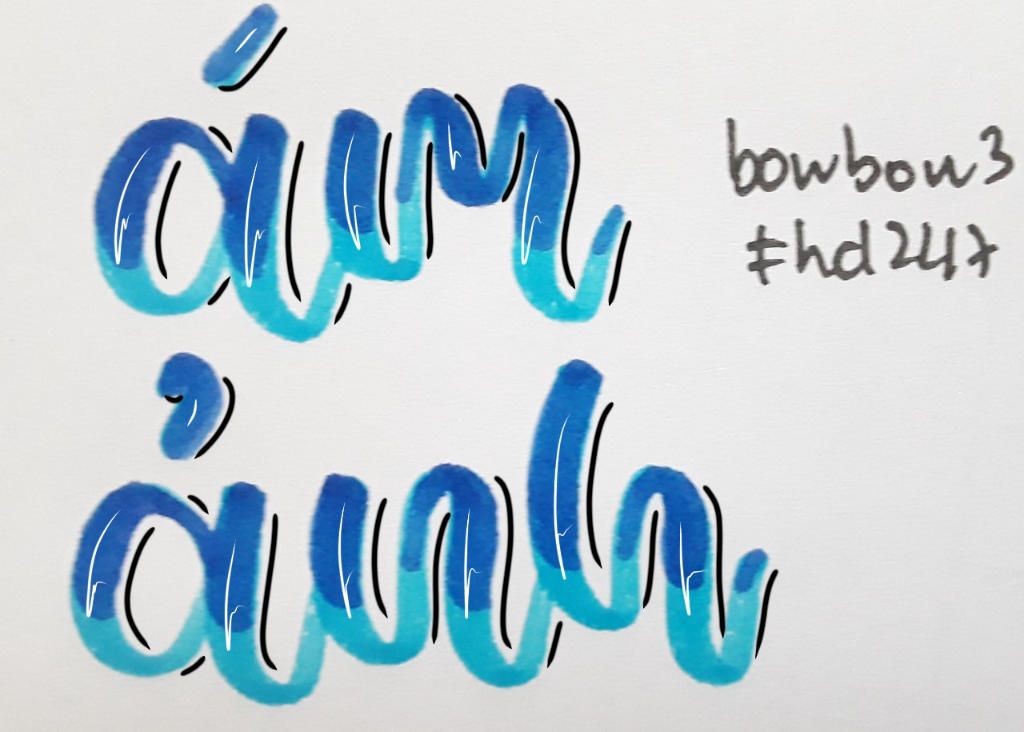 ám
bowbow3
#hd247
ảnh